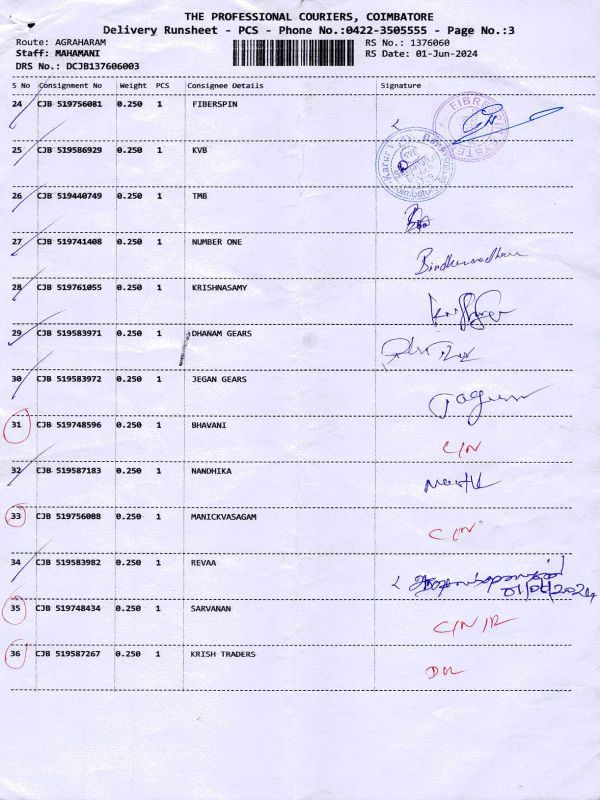 THE PROFESSIONAL COURIERS, COIMBATORE
Delivery Runsheet - PCS - Phone No.:0422-3505555 - Page No.:3
Route: AGRAHARAM RS No.: 1376060
Staff: MAHAMANI RS Date: 01-Jun-2024
DRS No.: DCJB137606003
S No Consignment No Weight PCS Consignee Details Signature
24 CJB 519756081 0.250 1 FIBERSPIN
25 CJB 519586929 0.250 1 KVB
26 CJB 519440749 0.250 1 TMB
27 CJB 519741408 0.250 1 NUMBER ONE
28 CJB 519761055 0.250 1 KRISHNASAMY
29 CJB 519583971 0.250 1 DHANAM GEARS
30 CJB 519583972 0.250 1 JEGAN GEARS
31 CJB 519748596 0.250 1 BHAVANI C/N
32 CJB 519587183 0.250 1 NANDHIKA
33 CJB 519756088 0.250 1 MANICKVASAGAM C/N
34 CJB 519583982 0.250 1 REVAA
35 CJB 519748434 0.250 1 SARVANAN C/N/R
36 CJB 519587267 0.250 1 KRISH TRADERS